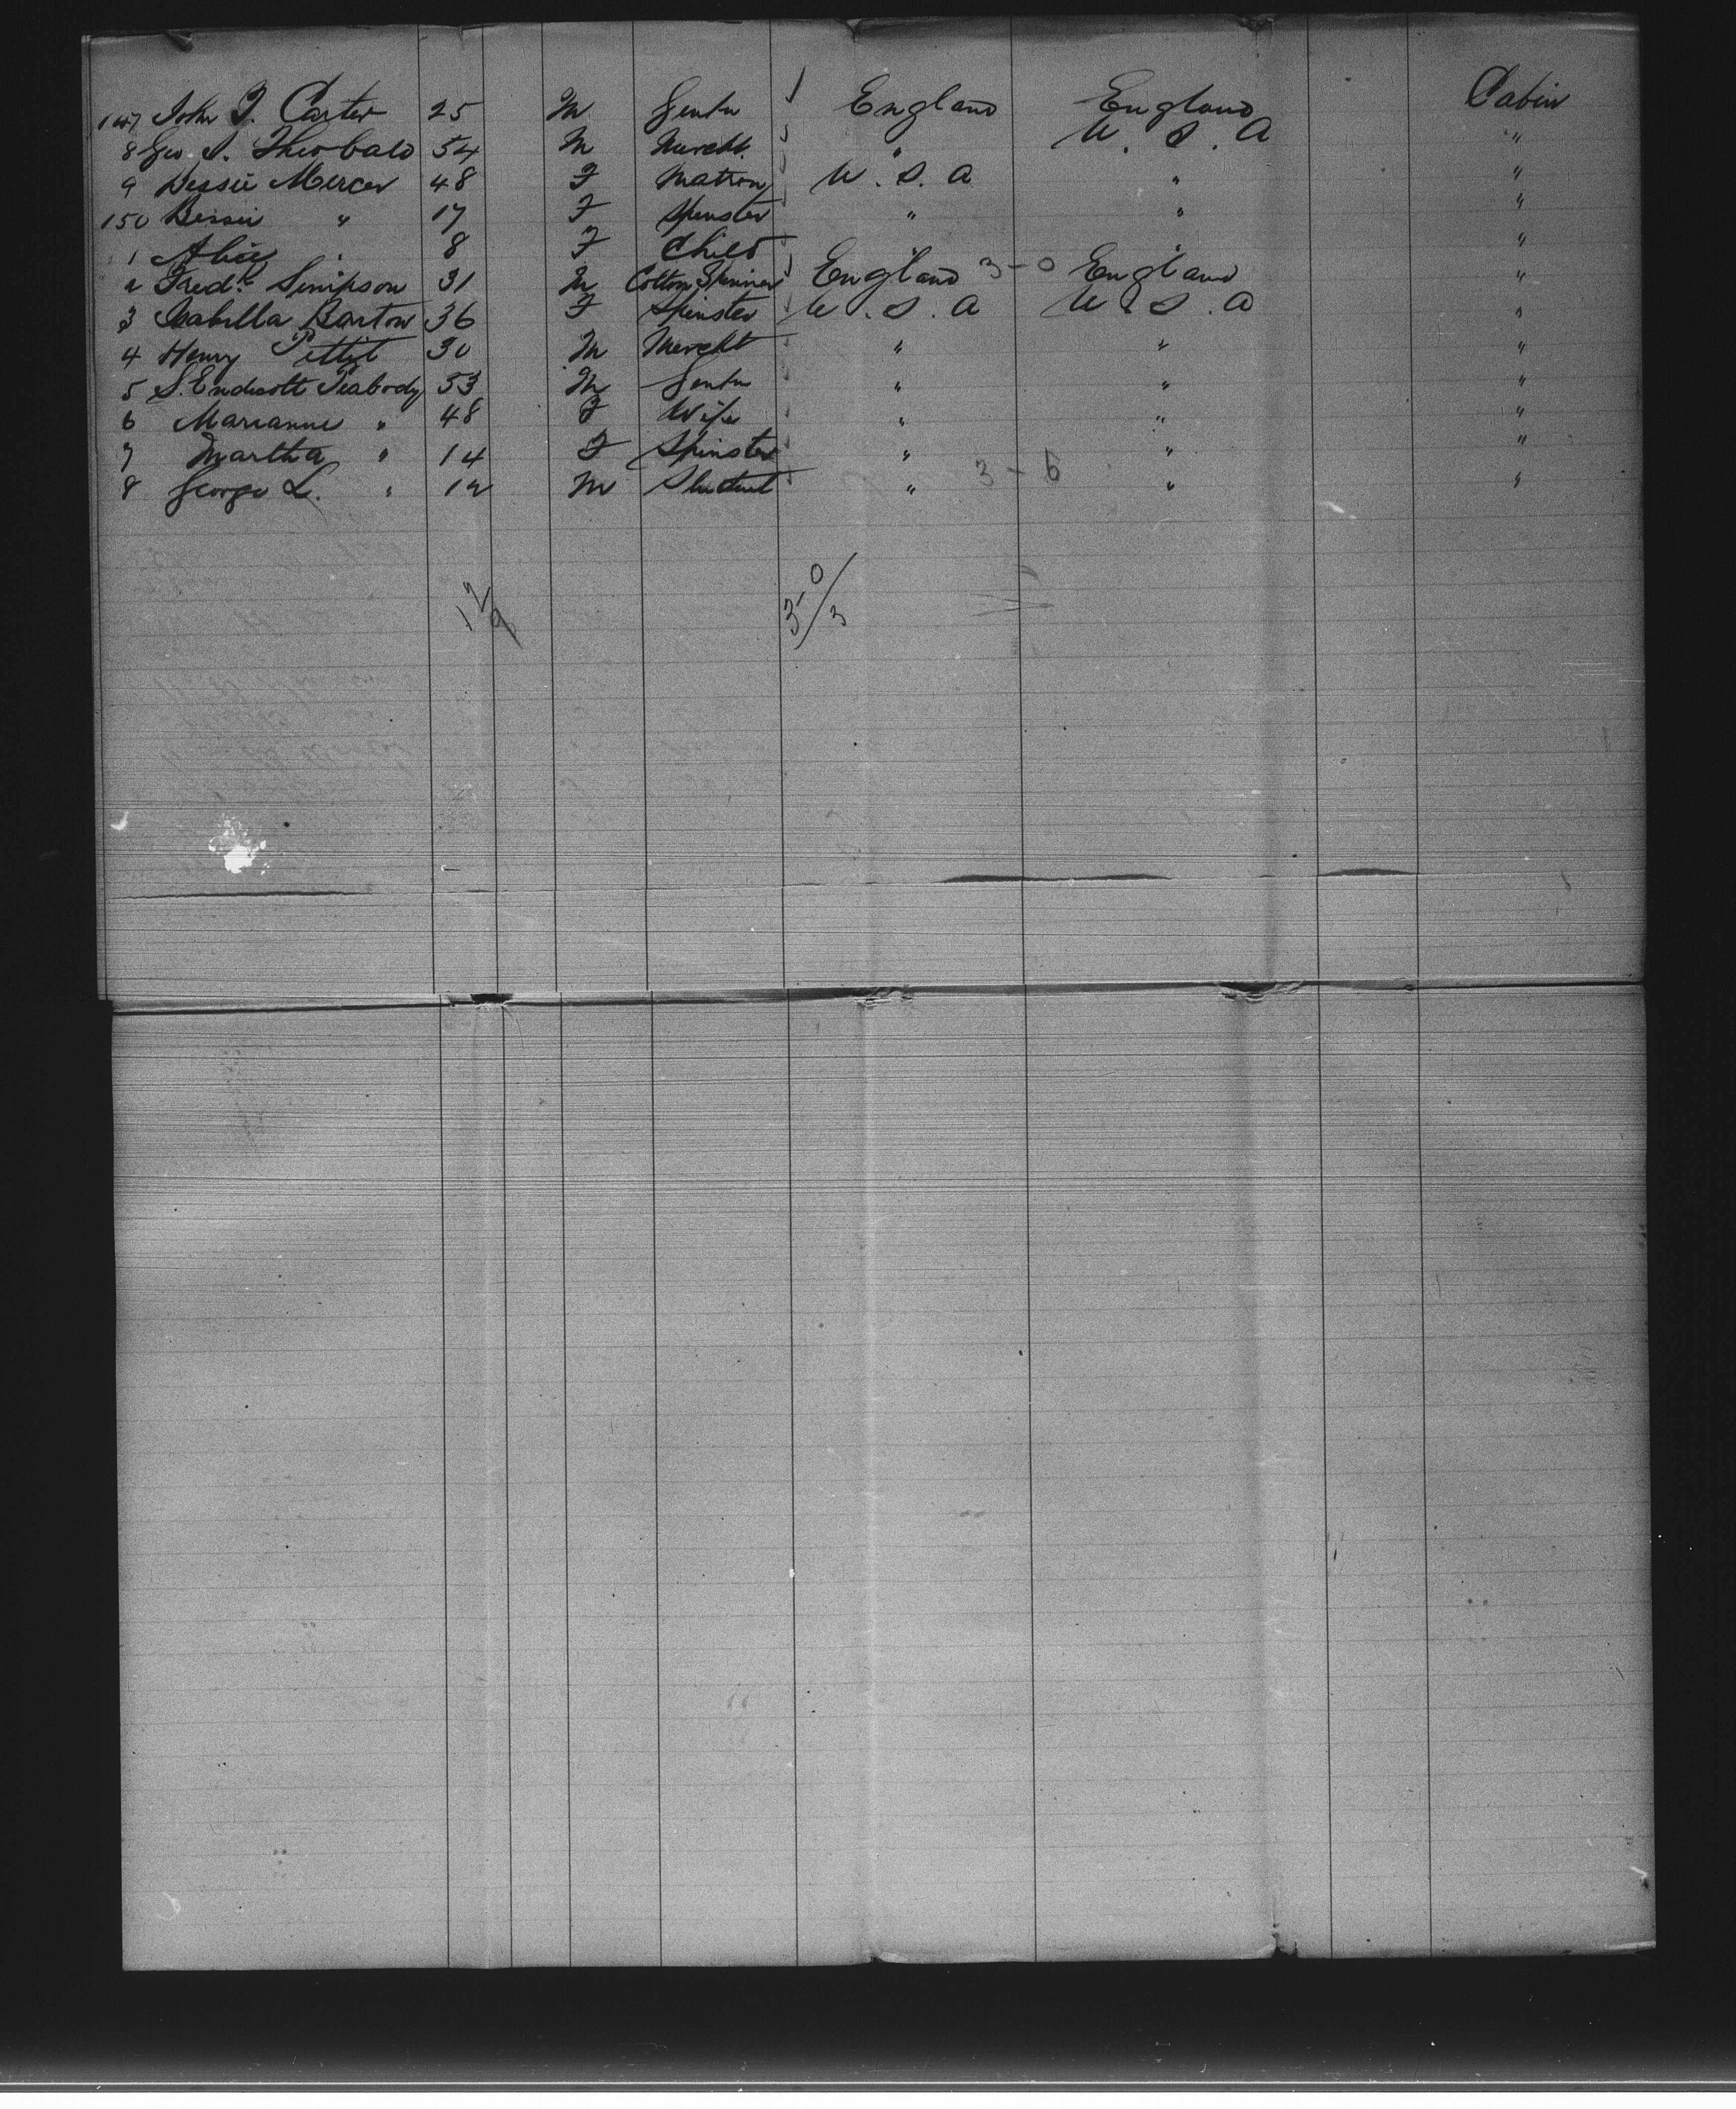 147 John F. Carter 25 M Gentn England England Cabin
8 Geo. S. Theobald 54 M Mercht. " U.S.A "
9 Bessie Mercer 48 F Matron U.S.A " "
150 Bessie " 17 F Spinster " " "
1 Alice " 8 F Child " " "
2 Fredk. Simpson 31 M Cotton Spinner England 3-0 England "
3 Isabella Barton 36 F Spinster U.S.A U.S.A "
4 Henry Pettit 30 M Mercht " " "
5 S. Endicott Peabody 53 M Gentn " " "
6 Marianne " 48 F Wife " " "
7 Martha " 14 F Spinster " " "
8 George L. " 12 M Student " 3-6 " "
12/9 3-0/3